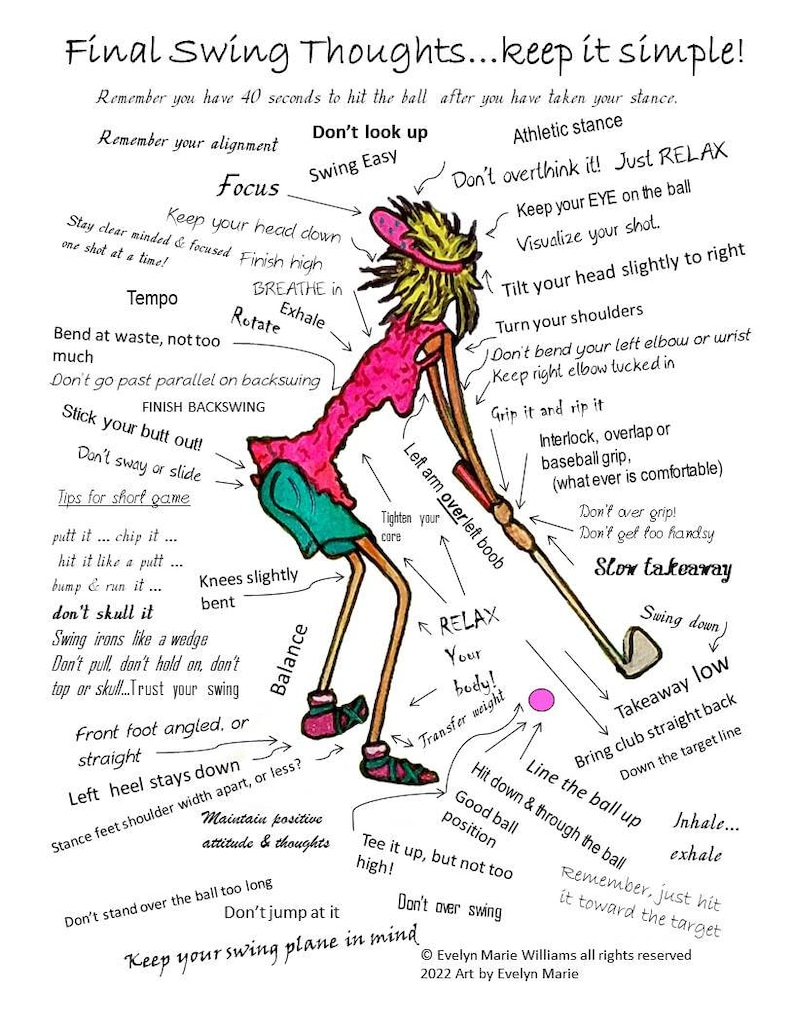 Final Swing Thoughts...keep it simple!
Remember you have 40 seconds to hit the ball after you have taken your stance.
Remember your alignment
Don't look up
Athletic stance
Swing Easy
Don't overthink it! Just RELAX
Focus
Keep your EYE on the ball
Keep your head down
Visualize your shot.
Stay clear minded & focused
one shot at a time!
Finish high
Tilt your head slightly to right
BREATHE in
Tempo
Exhale
Rotate
Turn your shoulders
Bend at waste, not too
much
Don't bend your left elbow or wrist
Keep right elbow tucked in
Don't go past parallel on backswing
FINISH BACKSWING
Grip it and rip it
Stick your butt out!
Interlock, overlap or
baseball grip,
(what ever is comfortable)
Don't sway or slide
Left arm over left boob
Tips for short game
Tighten your
core
Don't over grip!
Don't get too handsy
putt it ... chip it ...
hit it like a putt ...
bump & run it ...
don't skull it
Swing irons like a wedge
Don't pull, don't hold on, don't
top or skull...Trust your swing
Knees slightly
bent
Slow takeaway
Balance
RELAX
Your
body!
Swing down
Transfer weight
Takeaway low
Bring club straight back
Down the target line
Front foot angled, or
straight
Left heel stays down
Stance feet shoulder width apart, or less?
Line the ball up
Hit down & through the ball
Good ball
position
Maintain positive
attitude & thoughts
Tee it up, but not too
high!
Inhale...
exhale
Remember, just hit
it toward the target
Don't stand over the ball too long
Don't jump at it
Don't over swing
Keep your swing plane in mind
© Evelyn Marie Williams all rights reserved
2022 Art by Evelyn Marie